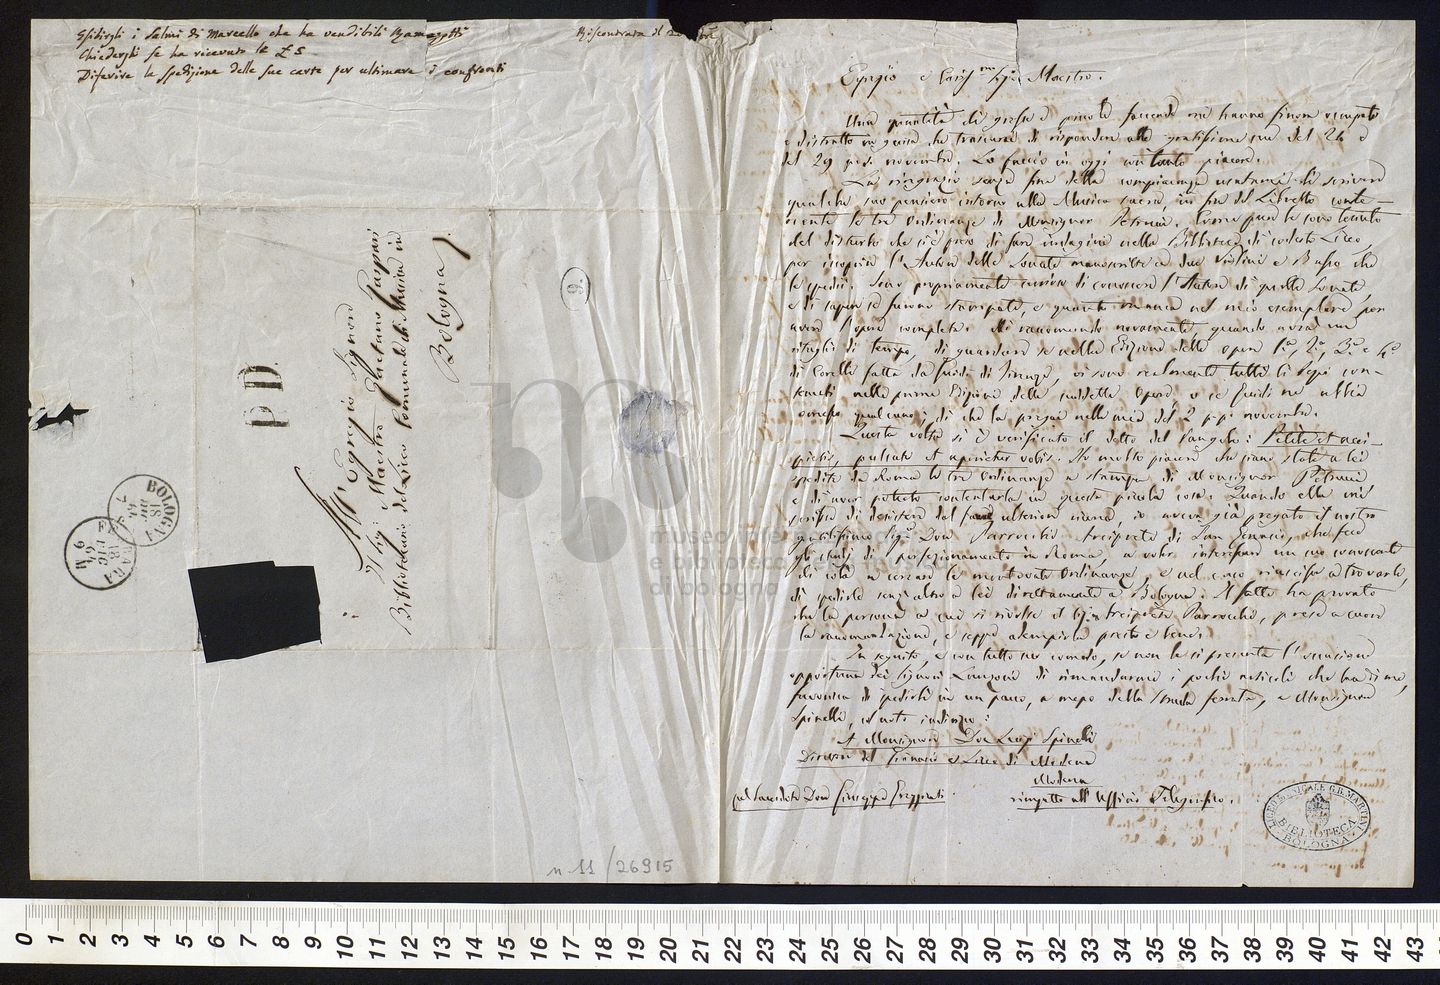 Esibirgli i Salmi di Marcello che ha vendibili Ramazzotti
Chiedergli se ha ricevuto le £ 5
Diferire la spedizione delle sue carte per ultimare i confronti
Riscontrata il
9.
PD
All' Egregio Signore
Il Sig.r Maestro Gaetano Gaspari
Bibliotecario del Liceo Comunale di Musica in
Bologna
BOLOGNA
FERRARA
18
DIC
64
9 M
n. 11/26915
Egregio e Sig.r Maestro.
Una quantità di grosse e piccole faccende mi hanno finora occupato
e distratto in guisa che trascurai di rispondere alle gratissime sue del 24 e
del 29 novembre. Lo faccio in oggi con tanto piacere.
La ringrazio senza fine della compiacenza di scrivere
qualche suo pensiero intorno alla Musica sacra in fine del Libretto conte-
nente le tre Ordinanze di Monsignor Petrucci. Come pure le sono tenuto
del disturbo che si è preso di fare indagini nella Biblioteca di codesto Liceo,
per iscoprire l'Autore delle Sonate manoscritte a due Violini e Basso che
le spedii. Sono propriamente curioso di conoscere l'Autore di quelle Sonate,
e di sapere se furono stampate, e quanto manca nel mio esemplare per
avere l'opera completa. Mi raccomando novamente, quando avrà un
ritaglio di tempo, di guardare se nella Edizione delle opere 1.a, 2.a, 3.a e 4.a
di Corelli fatta da Guidi di Firenze, vi sono realmente tutti li pezzi con-
tenuti nella prima Edizione delle suddette Opere o se Guidi ne abbia
omesso qualcuno; di che la pregai nella mia del 2 p.p. novembre.
Questa volta si è verificato il detto del Vangelo: Petite et acci-
pietis, pulsate et aperietur vobis. Ho molto piacere che siano state a lei
spedite da Roma le tre Ordinanze a stampa di Monsignor Petrucci
e di aver potuto contentarla in questa piccola cosa. Quando ella mi
scrisse di desistere dal fare ulteriori ricerche, io aveva già pregato il nostro
gentilissimo Sig.r Don Parrocchio Arciprete di San che fece
gli studi di perfezionamento in Roma, a voler interessare un suo conoscente
di colà a cercare le mentovate Ordinanze, e nel caso riuscisse a trovarle,
di spedirle senz'altro a lei direttamente a Bologna. Il fatto ha provato
che la persona a cui si rivolse il Sig.r Arciprete Parrocchio, prese a cuore
la raccomandazione, e seppe adempirla presto e bene.
In seguito, e con tutto suo comodo, se non le si presenta l'occasione
opportuna dei Signori di rimandarmi i pochi articoli che ha di me,
favorisca di spedirli in un pacco, a mezzo della strada ferrata, a Monsignore
Spinelli, col noto indirizzo:
A Monsignore Don Luigi Spinelli
Direttore del Ginnasio e Liceo di Modena
Modena
pel Sacerdote Don Giuseppe
rimpetto all'Ufficio Telegrafico.
LICEO MUSICALE G.B. MARTINI
BIBLIOTECA
BOLOGNA
museo internazionale
e biblioteca della musica
di bologna
0 1 2 3 4 5 6 7 8 9 10 11 12 13 14 15 16 17 18 19 20 21 22 23 24 25 26 27 28 29 30 31 32 33 34 35 36 37 38 39 40 41 42 43